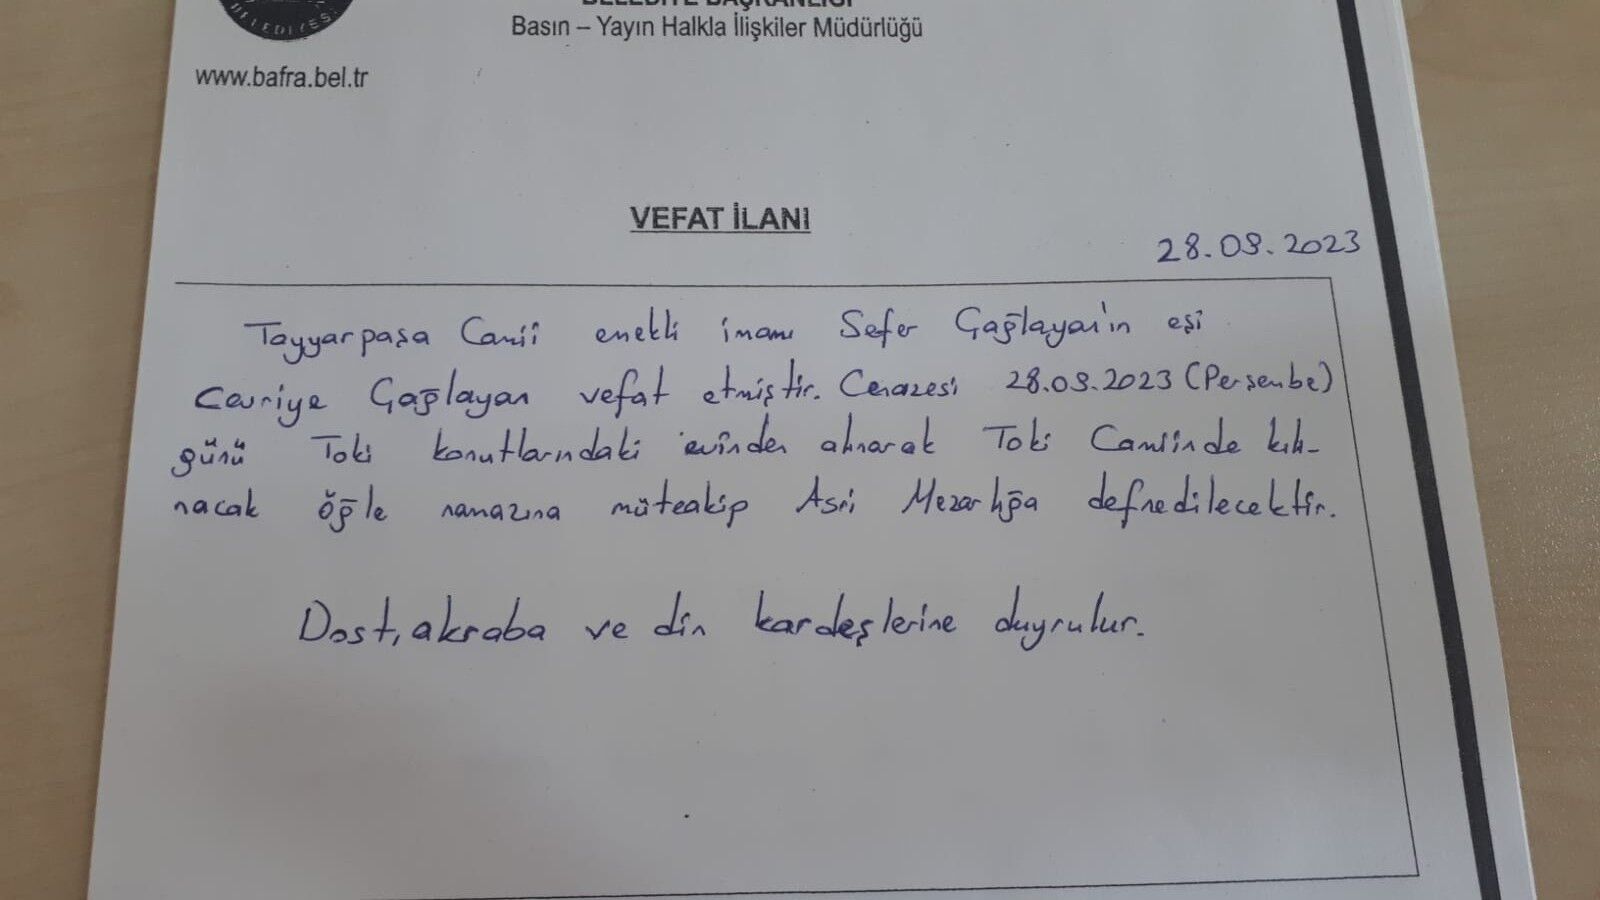 BELEDİYESİ
BELEDİYE BAŞKANLIĞI
Basın – Yayın Halkla İlişkiler Müdürlüğü
www.bafra.bel.tr
VEFAT İLANI
28.09.2023
Tayyarpaşa Camii emekli imamı Sefer Çağlayan'ın eşi
Cevriye Çağlayan vefat etmiştir. Cenazesi 28.09.2023 (Perşembe)
günü Toki konutlarındaki evinden alınarak Toki Camiinde kılı-
nacak öğle namazına müteakip Asri Mezarlığa defnedilecektir.
Dost, akraba ve din kardeşlerine duyrulur.